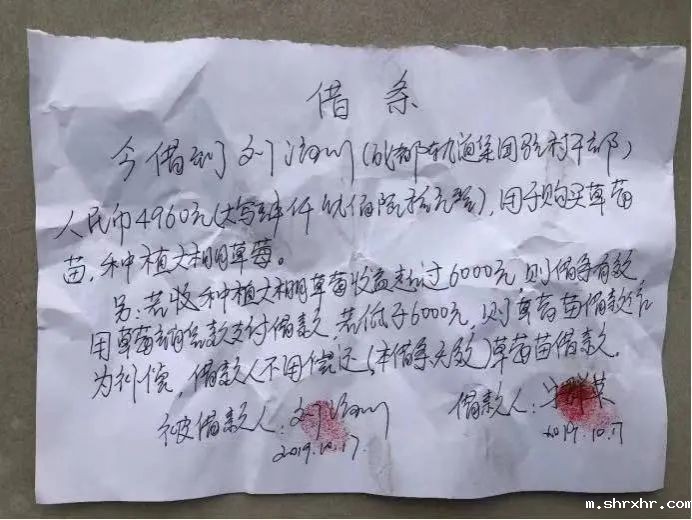 借条
今借到刘治州(成都轨道集团驻村干部)
人民币4960元(大写肆仟玖佰陆拾元整),用于购买草莓
苗,种植大棚草莓。
另:若收种植大棚草莓收益超过6000元,则借条有效
用草莓销售款支付借款,若低于6000元,则草莓苗借款
为补偿,借款人不用偿还(本借条失效)草莓苗借款。
被借款人: 借款人:
2019.10.17. 2019.10.17
m.shrxhr.com